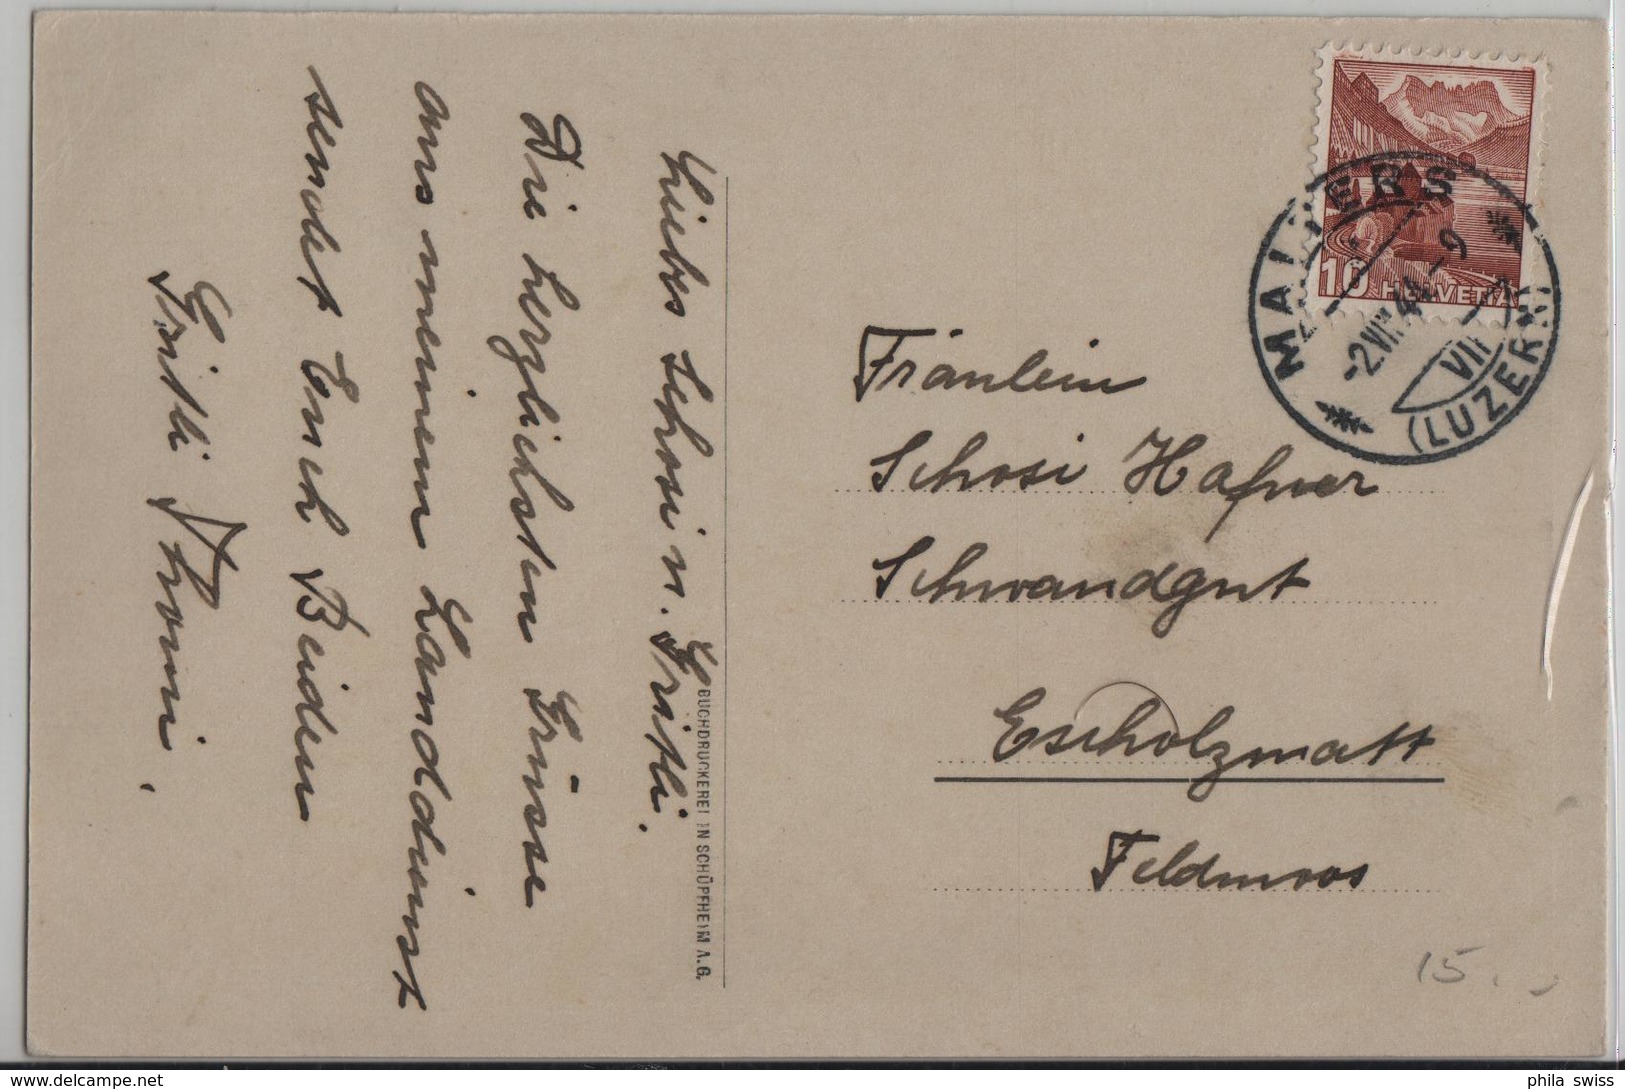 Liebes Schosi u. Gritli.
Die herzlichsten Grüsse
aus meinem Landdienst
sendet Euch Beiden
Gritli Thomi.
BUCHDRUCKEREI IN SCHÜPFHEIM A.G.
HELVETIA
10
MALTERS
(LUZERN)
-2.VIII.44-9
VII
Fräulein
Schosi Hafner
Schwandgut
Escholzmatt
Feldmoos
15.
phila swiss
www.delcampe.net